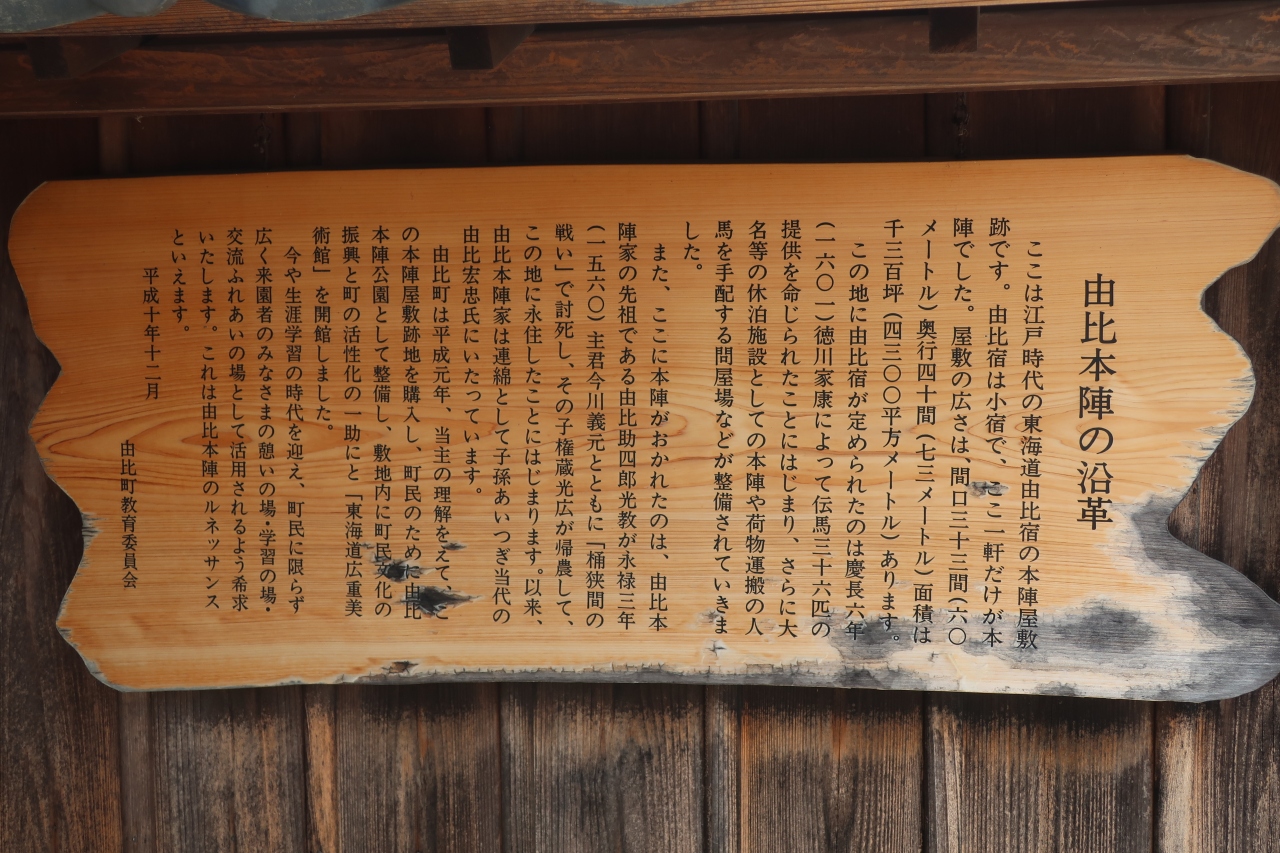 由比本陣の沿革
ここは江戸時代の東海道由比宿の本陣屋敷
跡です。由比宿は小宿で、ここ一軒だけが本
陣でした。屋敷の広さは、間口三十三間(六〇
メートル)奥行四十間(七三メートル)面積は
千三百坪(四三〇〇平方メートル)あります。
この地に由比宿が定められたのは慶長六年
(一六〇一)徳川家康によって伝馬三十六匹の
提供を命じられたことにはじまり、さらに大
名等の休泊施設としての本陣や荷物運搬の人
馬を手配する問屋場などが整備されていきま
した。
また、ここに本陣がおかれたのは、由比本
陣家の先祖である由比助四郎光教が永禄三年
(一五六〇)主君今川義元とともに「桶狭間の
戦い」で討死し、その子権蔵光広が帰農して、
この地に永住したことにはじまります。以来、
由比本陣家は連綿として子孫あいつぎ当代の
由比宏忠氏にいたっています。
由比町は平成元年、当主の理解をえて、こ
の本陣屋敷跡地を購入し、町民のために由比
本陣公園として整備し、敷地内に町民文化の
振興と町の活性化の一助にと「東海道広重美
術館」を開館しました。
今や生涯学習の時代を迎え、町民に限らず
広く来園者のみなさまの憩いの場・学習の場・
交流ふれあいの場として活用されるよう希求
いたします。これは由比本陣のルネッサンス
といえます。
平成十年十二月
由比町教育委員会